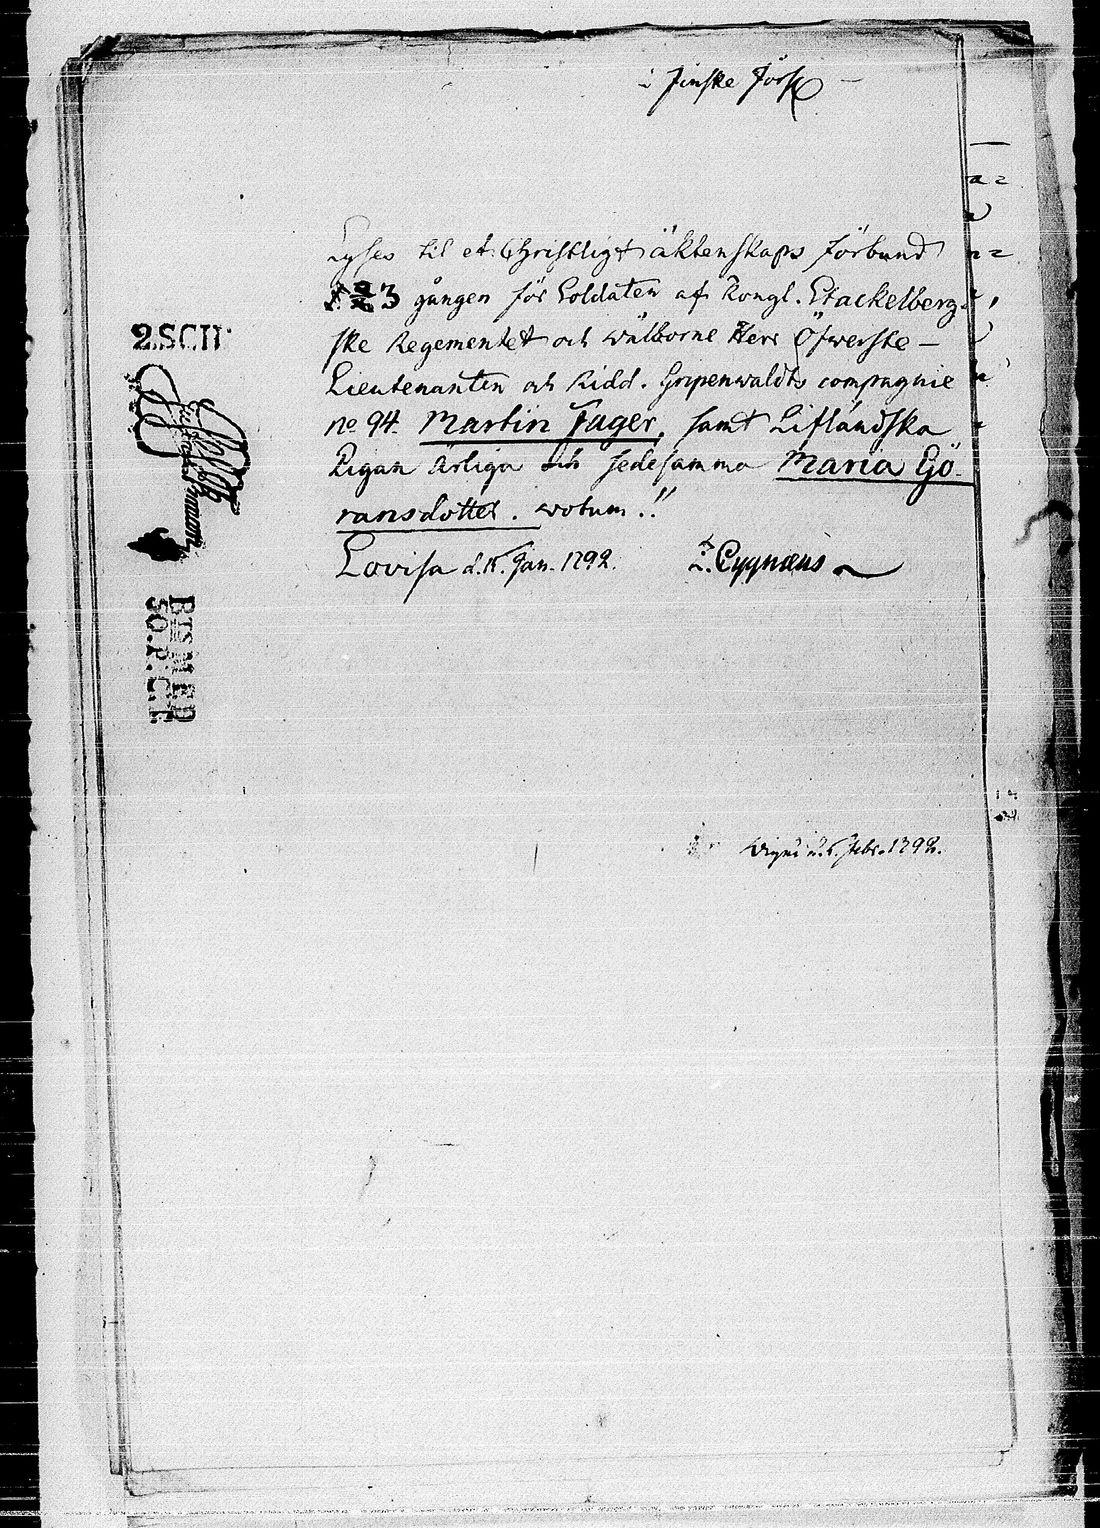 i Finske Förs
Lyses til et Christligt äktenskaps förbund
1. 2 3 gången för Soldaten af Kongl. Stackelberg
ske Regementet och wälborne Herr Öfwerste –
Lieutenanten och Ridd. Gripenwaldts compagnie
no 94. Martin Fager, samt Lifländska
Pigan ärliga och sedesamma Maria Gö-
ransdotter. wotum.!!
Lovisa d. 15. Jan. 1792. Z. Cygnæus
2.SCH
BTSMED
SO.P.C.T.
Wigde d. 5. Febr. 1792.